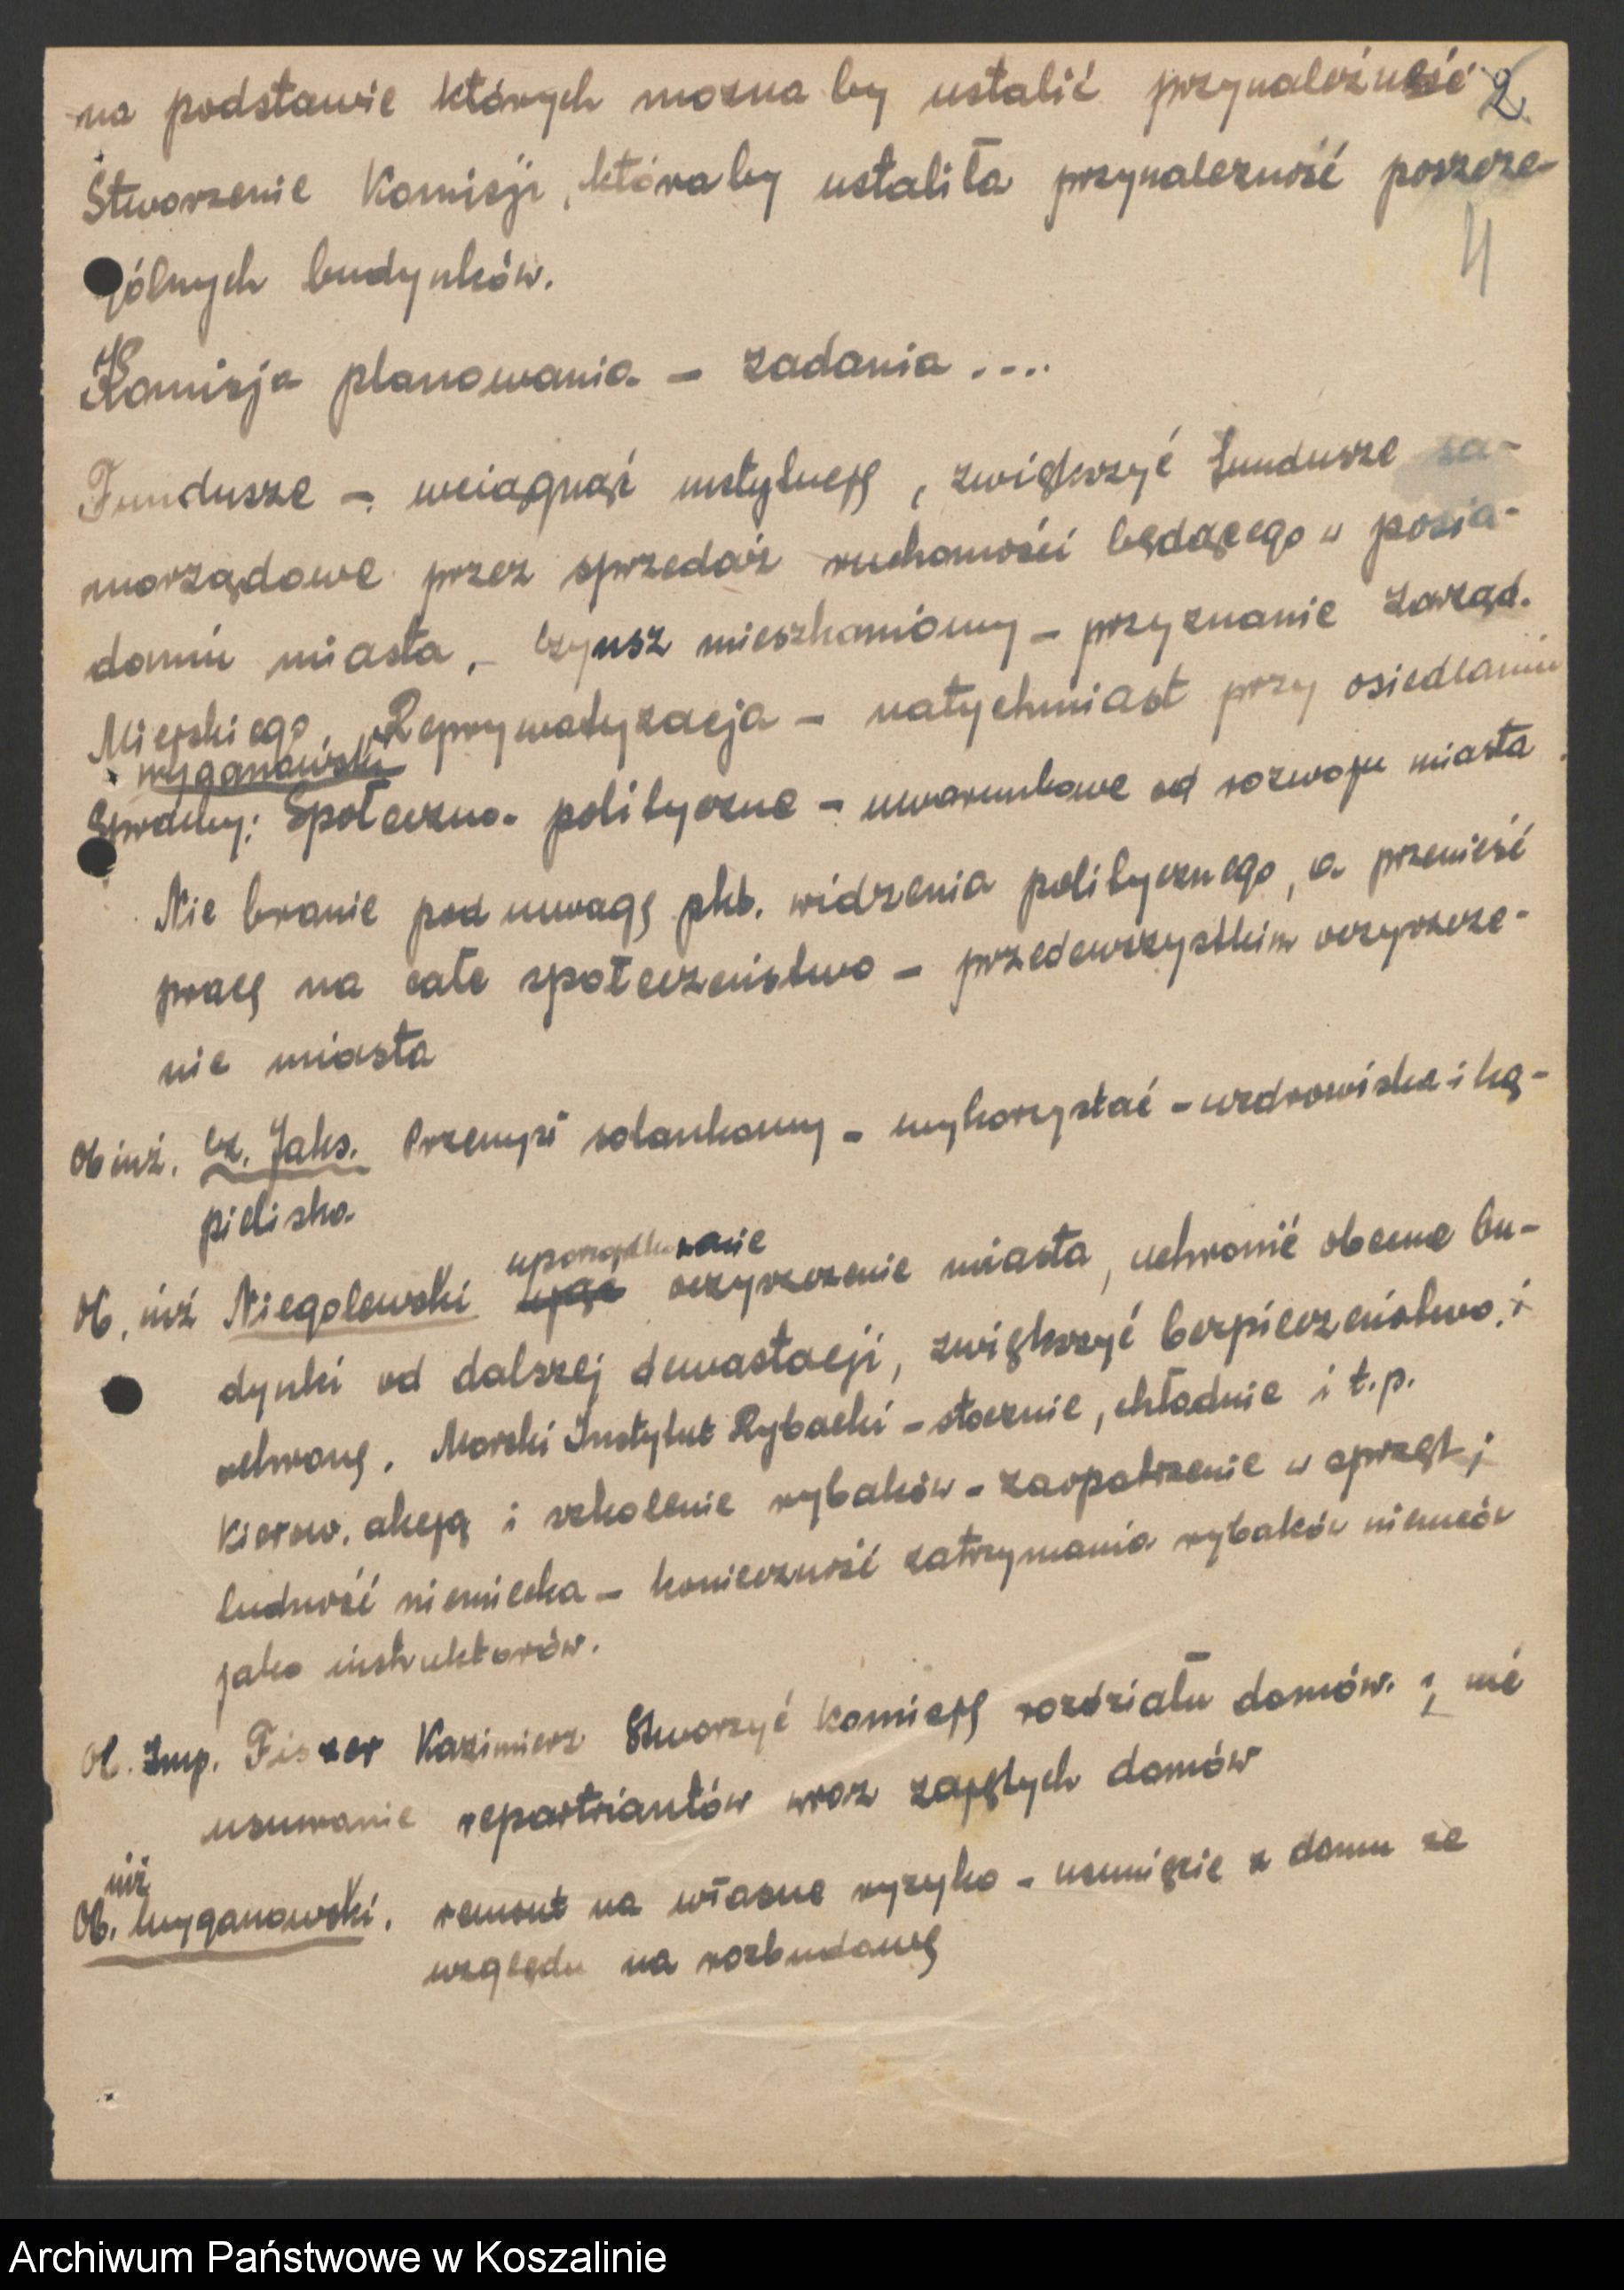 na podstawie których mozna by ustalić przynależność 2
Stworzenie Komisji, któraby ustaliła przynalezność poszcze-
gólnych budynków.
4
Komisja planowania – zadania ....
Fundusze – wciągnąć instytucję, zwiększyć fundusze sa-
morządowe przez sprzedaż ruchomości będącego w posia-
daniu miasta, – czynsz mieszkaniowy – przyznanie Zarząd.
Miejskiego, Reprywatyzacja – natychmiast przy osiedlaniu
wyganowski
Sprawy: Społeczno-polityczne – uwarunkowe od rozwoju miasta.
Nie branie pod uwagę pkt. widzenia politycznego, a przenieść
pracę na całe społeczeństwo – przedewszystkim oczyszcze-
nie miasta
Ob inż. cz. Jaks. Przemysł solankowy – wykorzystać – uzdrowiska i ką-
pieliska.
uporządkowanie
Ob. inż Niegolewski oczyszczenie miasta, uchronić obecne bu-
dynki od dalszej dewastacji, zwiększyć bezpieczeństwo, i
ochronę. Morski Instytut Rybacki – stocznie, chłodnie i t.p.
Kierow. akcją i szkolenie rybaków – zaopatrzenie w sprzęt;
ludność niemiecka – konieczność zatrzymania rybaków niemców
jako instruktorów.
Ob. Insp. Fiszer Kazimierz Stworzyć komisję rozdziału domów. i nie
usuwanie repartriantów wraz zajętych domów
inż
Ob. wyganowski. remont na własne ryzyko – usunięcie z domu ze
względu na rozbudowę
Archiwum Państwowe w Koszalinie